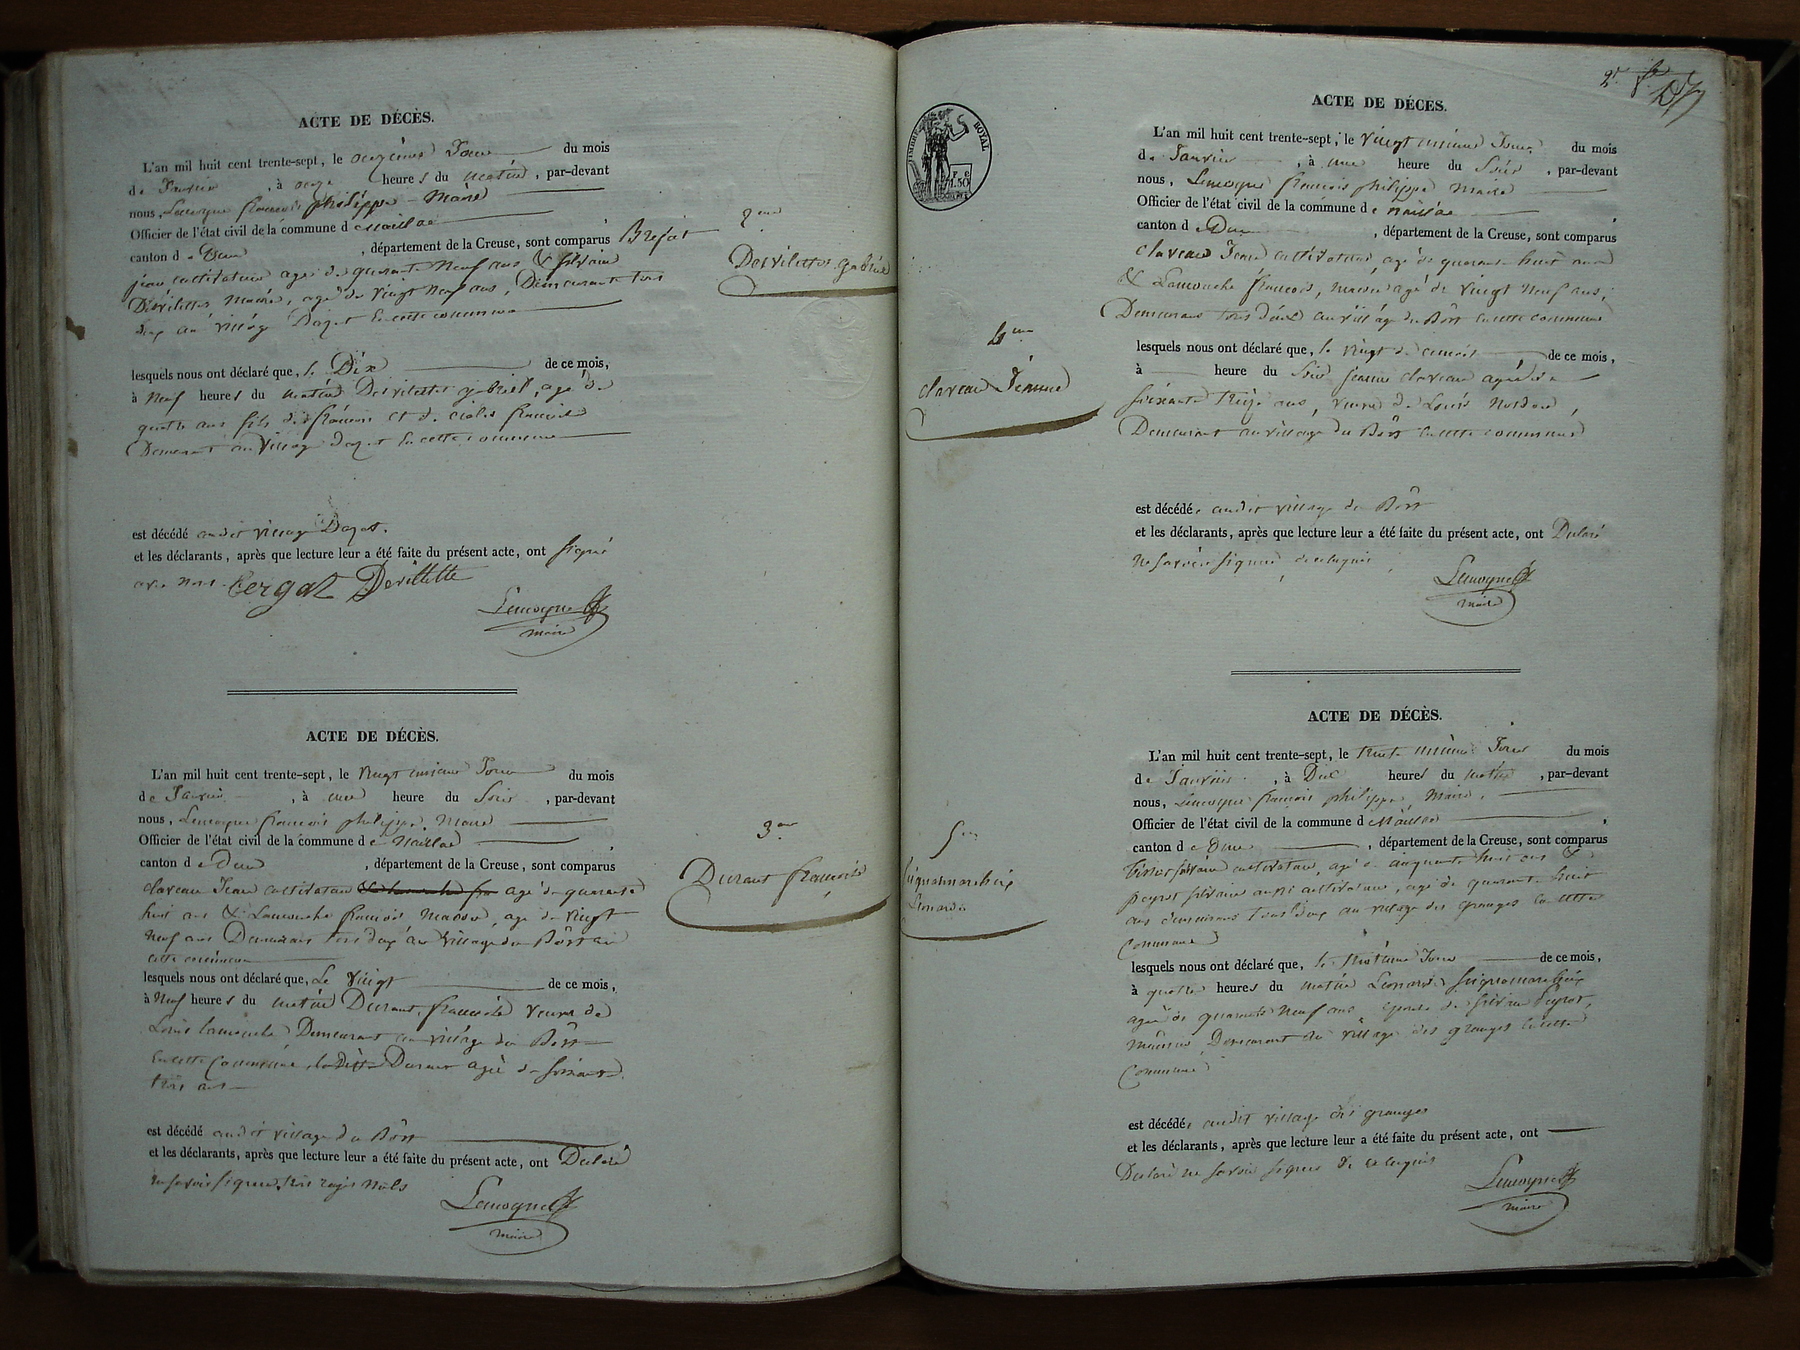 ACTE DE DÉCÈS.
L'an mil huit cent trente-sept, le onzième Jour du mois
de Janvier, à onze heures du matin, par-devant
nous, Lemoyne françois philippe Maire
Officier de l'état civil de la commune de Maillac
canton de Dun, département de la Creuse, sont comparus
jean cultivateur agé de quarante Neuf ans & Silvain
Desvilettes Macon, agé de vingt Neuf ans, Demeurant tous
deux au village Dazat en cette commune
lesquels nous ont déclaré que, le Dix de ce mois,
à Neuf heures du matin Desvilettes gabriel, agé de
quatre ans fils de françois et de
Demeurant au village dazat en cette commune
est décédé audit village Dazat.
et les déclarants, après que lecture leur a été faite du présent acte, ont signé
avec nous Devillette
Lemoyne
maire
2eme
Desvilettes gabriel
ACTE DE DÉCÈS.
L'an mil huit cent trente-sept, le vingt unieme Jour du mois
de Janvier, à une heure du Soir, par-devant
nous, Lemoyne françois philippe, Maire
Officier de l'état civil de la commune de Maillac
canton de Dun, département de la Creuse, sont comparus
claveau Jean cultivateur agé de quarante
huit ans & Lamouche françois Macon, agé de vingt
Neuf ans Demeurant tous deux au village du Bost en
cette commune
lesquels nous ont déclaré que, Le vingt de ce mois,
à Neuf heures du matin Durant françoise veuve de
Louis lamouche Demeurant au village du Bost
en cette Commune, la dite Durant agée de soixante
trois ans
est décédé audit village du Bost
et les déclarants, après que lecture leur a été faite du présent acte, ont Déclaré
ne savoir signer
Lemoyne
maire
3eme
Durant françoise
TIMBRE ROYAL
1.50
2e
ACTE DE DÉCES.
L'an mil huit cent trente-sept, le vingt unieme Jour du mois
de Janvier, à une heure du Soir, par-devant
nous, Lemoyne françois philippe Maire
Officier de l'état civil de la commune de Maillac
canton de Dun, département de la Creuse, sont comparus
claveau Jean cultivateur, agé de quarante huit ans
& Lamouche françois, macon agé de vingt Neuf ans,
Demeurant tous deux au village du Bost en cette commune
lesquels nous ont déclaré que, le vingt de ce mois,
à heure du Soir Jeanne claveau agée de
soixante treize ans, veuve de Louis
Demeurant au village du Bost en cette commune
est décédée audit village du Bost
et les déclarants, après que lecture leur a été faite du présent acte, ont Déclaré
ne savoir signer de ce enquis
Lemoyne
maire
4eme
claveau Jeanne
ACTE DE DÉCÈS.
L'an mil huit cent trente-sept, le trente unieme Jour du mois
de Janvier, à Dix heures du matin, par-devant
nous, Lemoyne françois philippe, Maire,
Officier de l'état civil de la commune de Maillac
canton de Dun, département de la Creuse, sont comparus
Silvain cultivateur, agé de cinquante huit ans &
peyrot Silvain aussi cultivateur, agé de quarante huit
ans demeurant tous deux au village des granges en cette
Commune
lesquels nous ont déclaré que, le Jour de ce mois,
à quatre heures du matin Leonarde
agée de quarante Neuf ans epouse de Silvain Peyrot,
Demeurant au village des granges en cette
Commune
est décédée audit village des granges
et les déclarants, après que lecture leur a été faite du présent acte, ont
Déclaré ne savoir signer de ce enquis
Lemoyne
maire
5eme
Leonarde